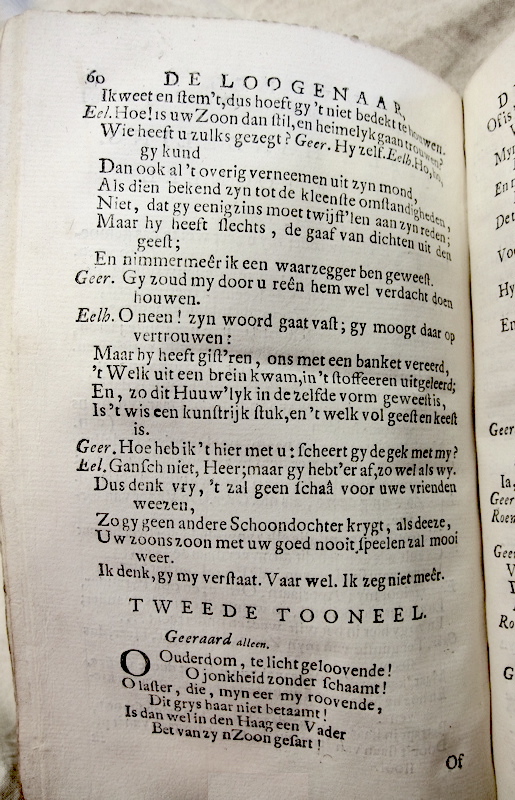 60 DE LOOGENAAR,
Ik weet en ſtem't, dus hoeft gy 't niet bedekt te houwen.
Eel. Hoe! is uw Zoon dan ſtil, en heimelyk gaan trouwen?
Wie heeft u zulks gezegt? Geer. Hy zelf. Eelh. Ho, ho,
gy kund
Dan ook al 't overig verneemen uit zyn mond,
Als dien bekend zyn tot de kleenſte omſtandigheden,
Niet, dat gy eenigzins moet twijff'len aan zyn reden;
Maar hy heeft ſlechts, de gaaf van dichten uit den
geeſt;
En nimmermeêr ik een waarzegger ben geweeſt.
Geer. Gy zoud my door u reên hem wel verdacht doen
houwen.
Eelh. O neen! zyn woord gaat vaſt; gy moogt daar op
vertrouwen:
Maar hy heeft giſt'ren, ons met een banket vereerd,
't Welk uit een brein kwam, in 't ſtoffeeren uitgeleerd;
En, zo dit Huuw'lyk in de zelfde vorm geweeſt is,
Is 't wis een kunſtrijk ſtuk, en 't welk vol geeſt en keeſt
is.
Geer. Hoe heb ik 't hier met u: ſcheert gy de gek met my?
Eel. Ganſch niet, Heer; maar gy hebt'er af, zo wel als wy.
Dus denk vry, 't zal geen ſchaâ voor uwe vrienden
weezen,
Zo gy geen andere Schoondochter krygt, als deeze,
Uw zoons zoon met uw goed nooit ſpeelen zal mooi
weer.
Ik denk, gy my verſtaat. Vaar wel. Ik zeg niet meêr.
TWEEDE TOONEEL.
Geeraard alleen.
O Ouderdom, te licht geloovende!
O jonkheid zonder ſchaamt!
O laſter, die, myn eer my roovende,
Dit grys haar niet betaamt!
Is dan wel in den Haag een Vader
Bet van zy nZoon geſart!
Of
D
Of is
My
En
Det
Vo
Hy
En
Geer
Ia,
Geer
Roen
Geer
V
Ro
G